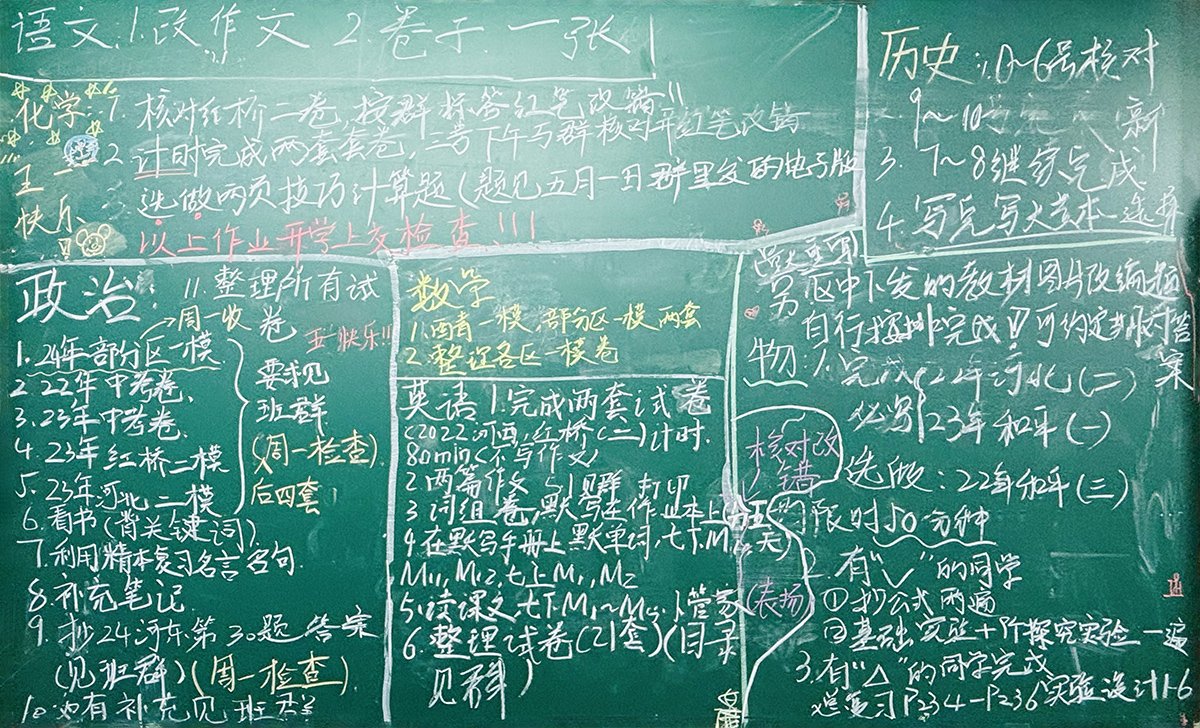 语文:1.改作文 2.卷子一张
化学:1.核对红桥二卷,按群标答红笔改错!!
2.计时完成两套套卷,三号下午与群核对并红笔改错
选做两页技巧计算题(题见五月一日群里发的电子版
以上作业开学上交检查!!!
五一
快乐
历史:1.1~6号核对
9~10 新
3. 7~8继续完成
4.写完写大本 选择
政治: 11.整理所有试卷
→周一收
五一快乐!!
1.24年部分区一模
2.22年中考卷.
3.23年中考卷.
4.23年红桥二模
5.23年河北二模
要求见
班群
(周一检查)
后四套
6.看书(背关键词).
7.利用精本复习名言名句.
8.补充笔记.
9.抄24河东第30题答案
(见班群)(周一检查)
10.如有补充见班群
数学
1.西青一模.部分区一模两套
2.整理各区一模卷
英语 1.完成两套试卷
(2022河西,红桥(二)计时.
80min<不写作文)
2.两篇作文 见群 打印
3.词组卷,默写在作业本上(五天)
4.在默写手册上默单词,七下.M
M11, M12,七上M1, M2
5.读课文.七下.M1~M
6.整理试卷(21套)(目录
见群)
另 区中下发的教材图片改编题
自行按排完成!!可约定时对答案
物:1.完成 22年河北(二)
必写 23年和平(一)
选做:22年和平(三)
限时50分钟
核对改
错
(表扬)
2.有"✓"的同学
①抄公式两遍
②基础实验+阶探究实验一遍
3.有"△"的同学完成
总复习P234-P236实验设计1-6